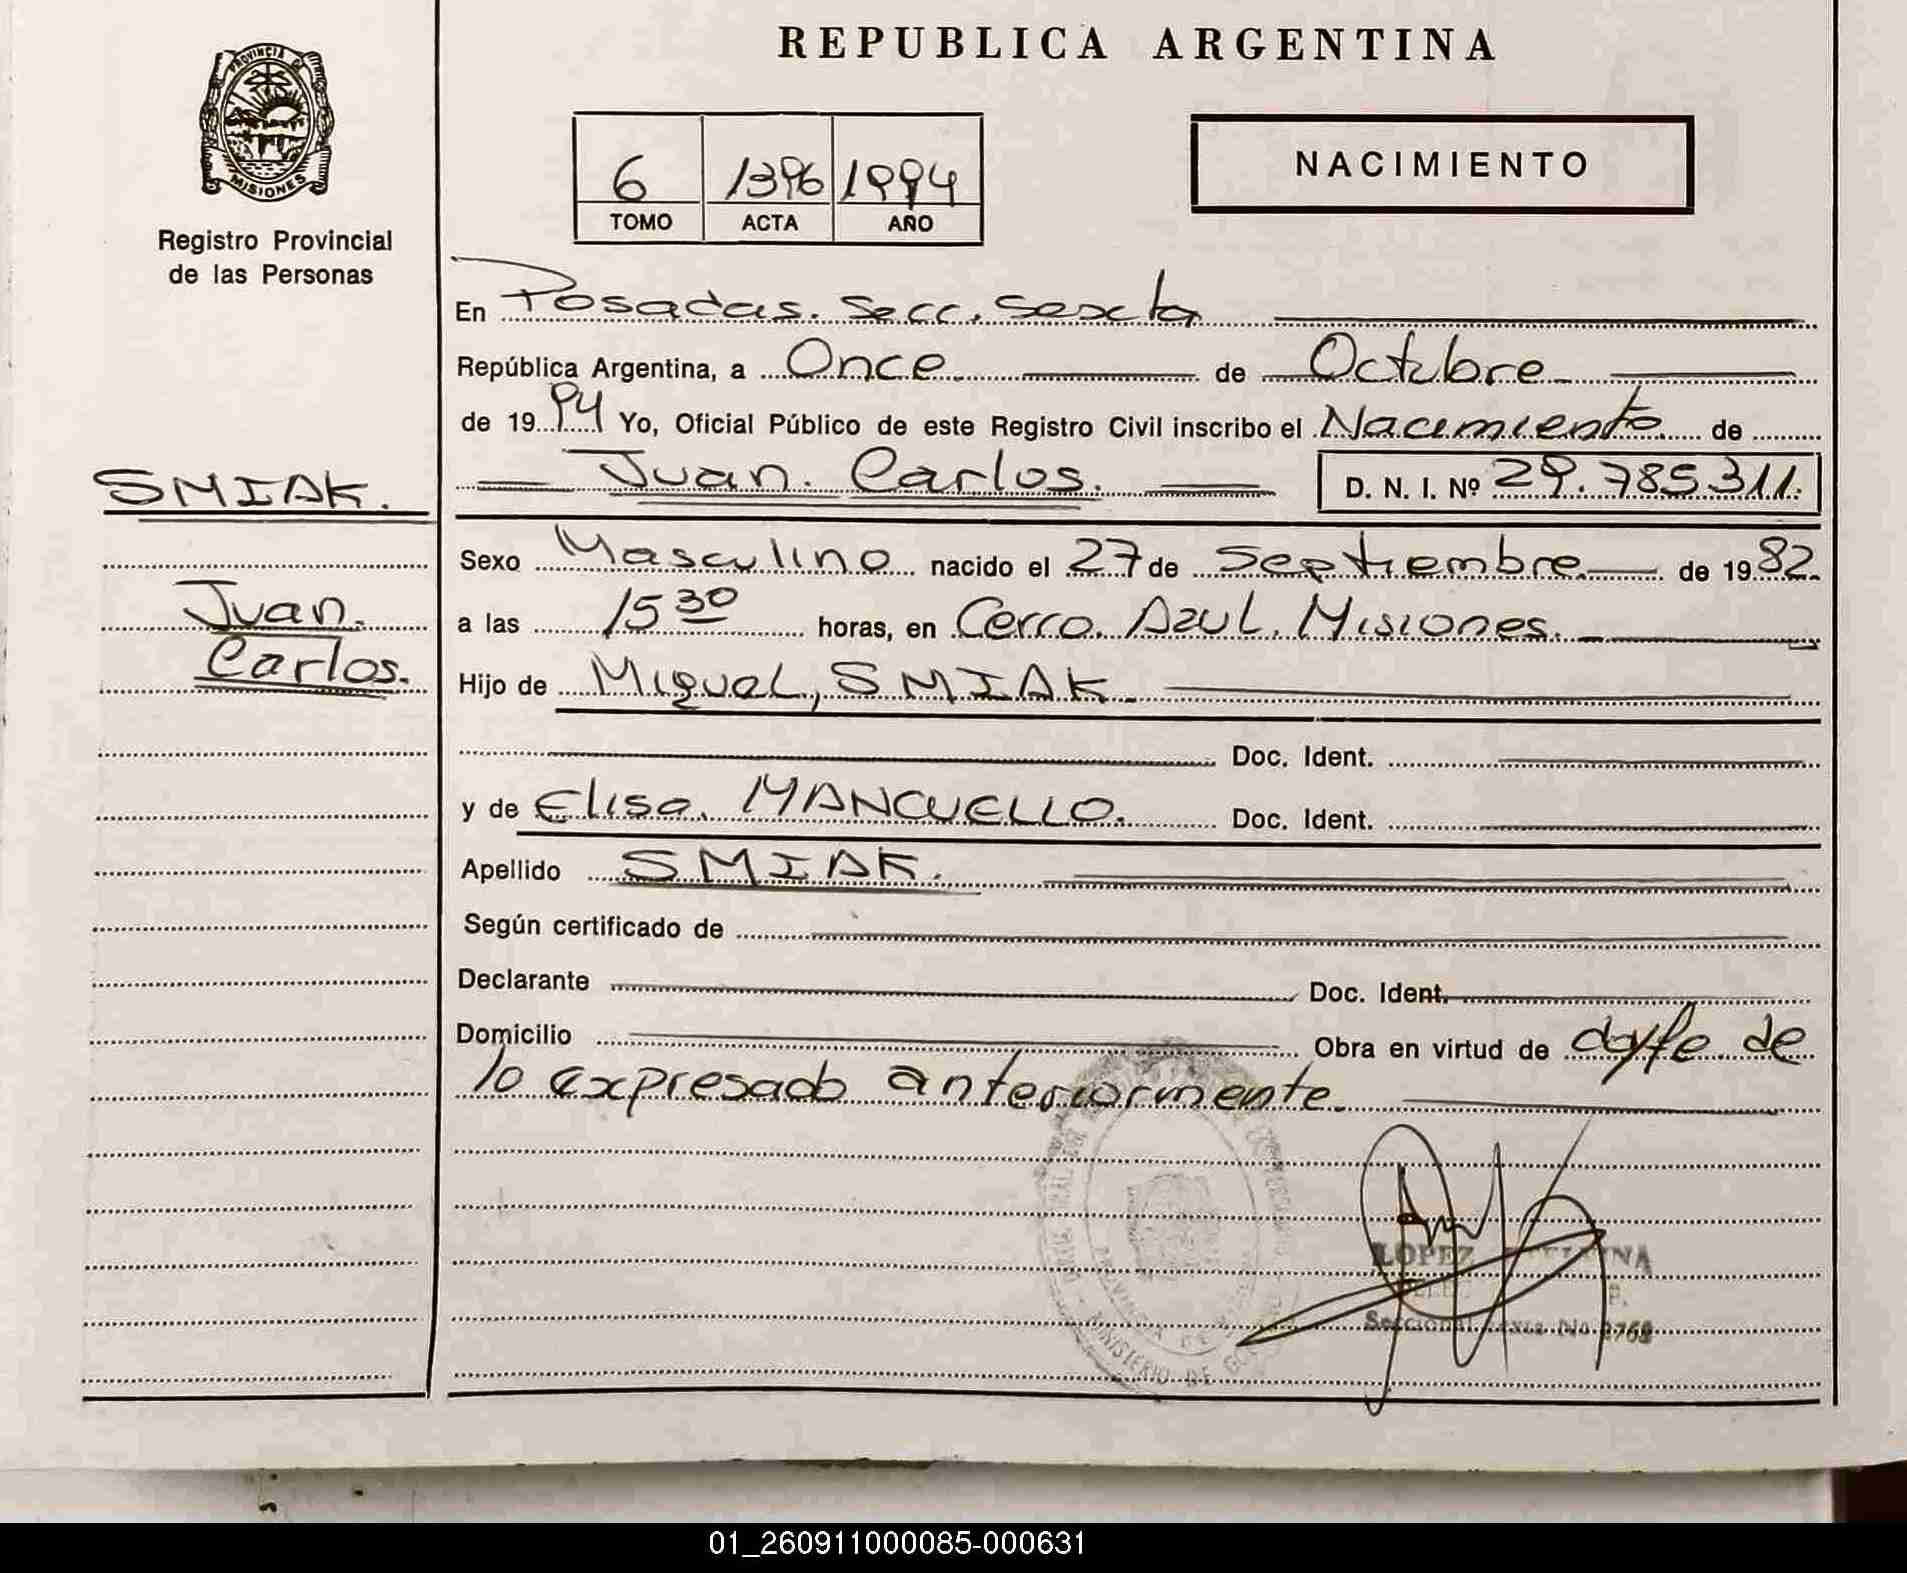 REPUBLICA ARGENTINA
PROVINCIA DE
MISIONES
Registro Provincial
de las Personas
6 1396 1994
TOMO ACTA AÑO
NACIMIENTO
En Posadas. Secc. Sexta
República Argentina, a Once de Octubre
de 1994 Yo, Oficial Público de este Registro Civil inscribo el Nacimiento de
Juan. Carlos. D. N. I. Nº 29.785.311.
SMIAK.
Juan.
Carlos.
Sexo Masculino nacido el 27 de Septiembre de 1982.
a las 15 30 horas, en Cerro. Azul. Misiones.
Hijo de Miguel, SMIAK.
Doc. Ident.
y de Elisa. MANCUELLO. Doc. Ident.
Apellido SMIAK.
Según certificado de
Declarante Doc. Ident.
Domicilio Obra en virtud de doyfe de
lo expresado anteriormente.
LOPEZ
Seccional Sexta No 2768
PROVINCIA DE
MINISTERIO DE
01_260911000085-000631